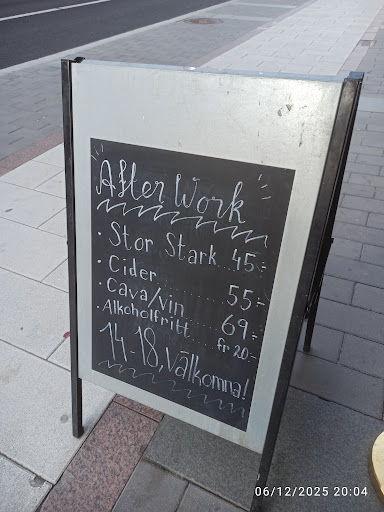 After Work
· Stor Stark 45:-
· Cider......... 55:-
· Cava/Vin...... 69:-
· Alkoholfritt fr 20:-
14-18, Välkomna!
06/12/2025 20:04